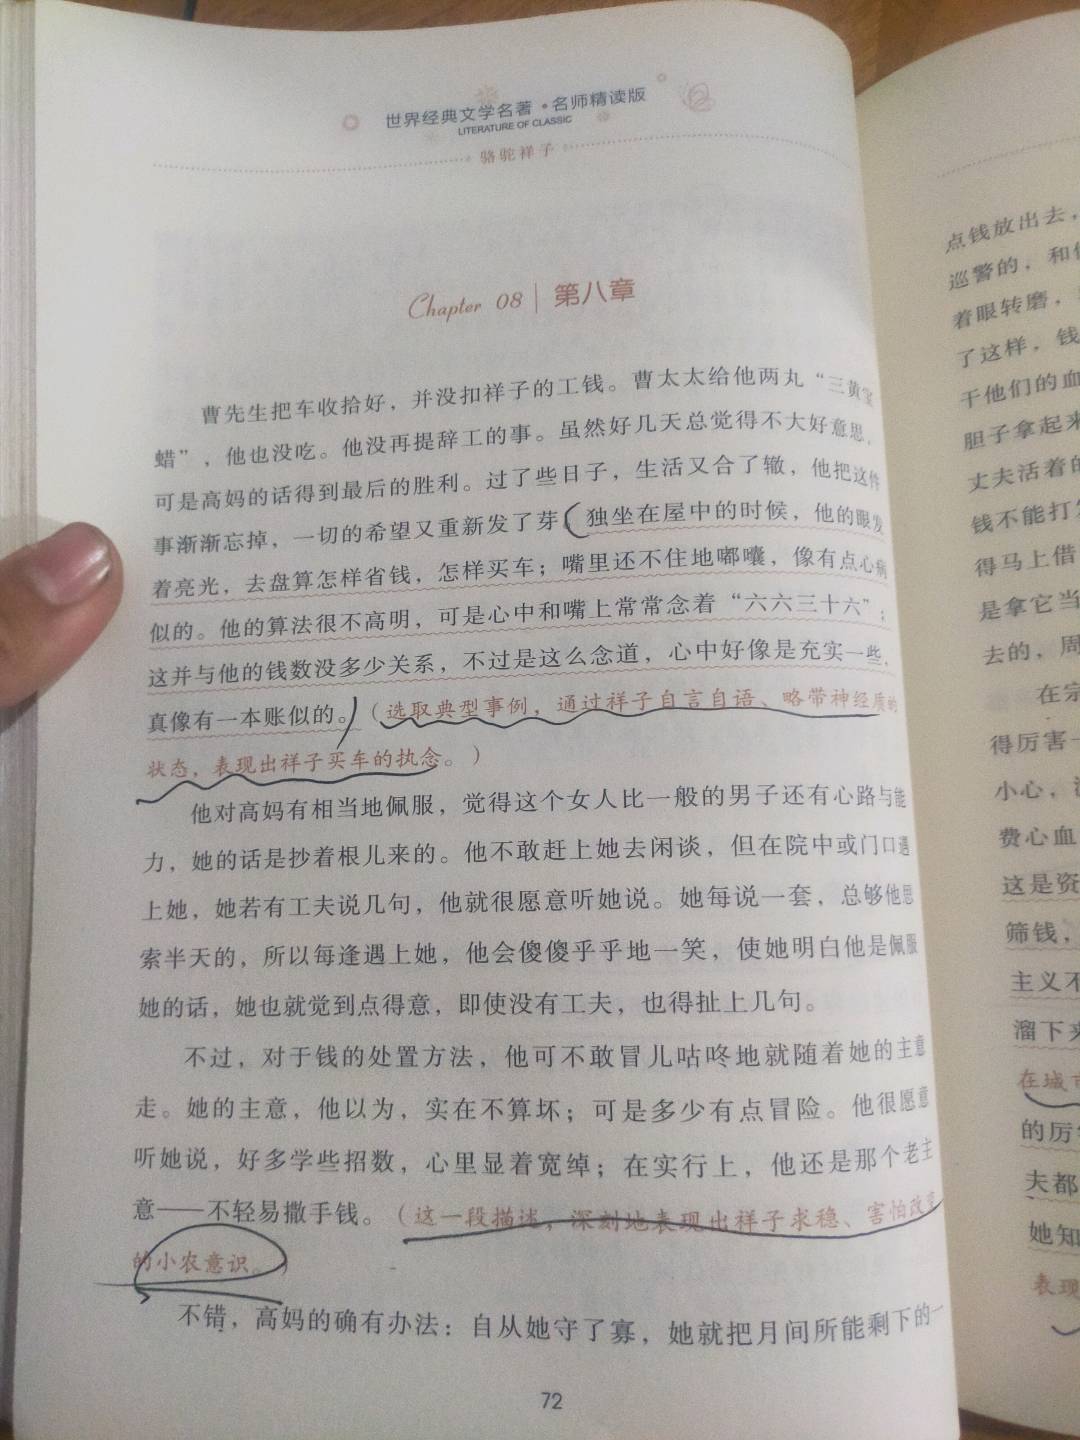 世界经典文学名著·名师精读版
LITERATURE OF CLASSIC
骆驼祥子
Chapter 08 | 第八章
曹先生把车收拾好，并没扣祥子的工钱。曹太太给他两丸“三黄宝
蜡”，他也没吃。他没再提辞工的事。虽然好几天总觉得不大好意思，
可是高妈的话得到最后的胜利。过了些日子，生活又合了辙，他把这件
事渐渐忘掉，一切的希望又重新发了芽。独坐在屋中的时候，他的眼发
着亮光，去盘算怎样省钱，怎样买车；嘴里还不住地嘟囔，像有点心病
似的。他的算法很不高明，可是心中和嘴上常常念着“六六三十六”；
这并与他的钱数没多少关系，不过是这么念道，心中好像是充实一些，
真像有一本账似的。（选取典型事例，通过祥子自言自语、略带神经质的
状态，表现出祥子买车的执念。）
他对高妈有相当地佩服，觉得这个女人比一般的男子还有心路与能
力，她的话是抄着根儿来的。他不敢赶上她去闲谈，但在院中或门口遇
上她，她若有工夫说几句，他就很愿意听她说。她每说一套，总够他思
索半天的，所以每逢遇上她，他会傻傻乎乎地一笑，使她明白他是佩服
她的话，她也就觉到点得意，即使没有工夫，也得扯上几句。
不过，对于钱的处置方法，他可不敢冒儿咕咚地就随着她的主意
走。她的主意，他以为，实在不算坏；可是多少有点冒险。他很愿意
听她说，好多学些招数，心里显着宽绰；在实行上，他还是那个老主
意——不轻易撒手钱。（这一段描述，深刻地表现出祥子求稳、害怕改变
的小农意识。）
不错，高妈的确有办法：自从她守了寡，她就把月间所能剩下的一
72
点钱放出去，
巡警的，和
着眼转磨，
了这样，钱
干他们的血
胆子拿起来
丈夫活着的
钱不能打
得马上借
是拿它当
去的，周
在宗
得厉害一
小心，
费心血
这是资
筛钱，
主义不
溜下来
在城市
的厉害
夫都
她知
表现